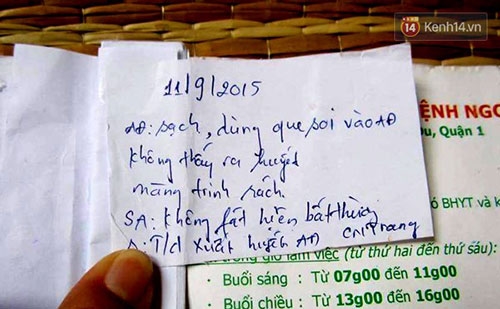 14 Kenh14.vn
11/9/2015
AĐ: sạch, dùng que soi vào AĐ
không thấy ra huyết
màng trinh rách
SA: không phát hiện bất thường
T/d xuất huyết AĐ CN Trang
ỆNH NGO
Quận 1
ó BHYT và k
giờ làm việc (từ thứ hai đến thứ sáu):
- Buổi sáng : Từ 07g00 đến 11g00
- Buổi chiều : Từ 13g00 đến 16g00